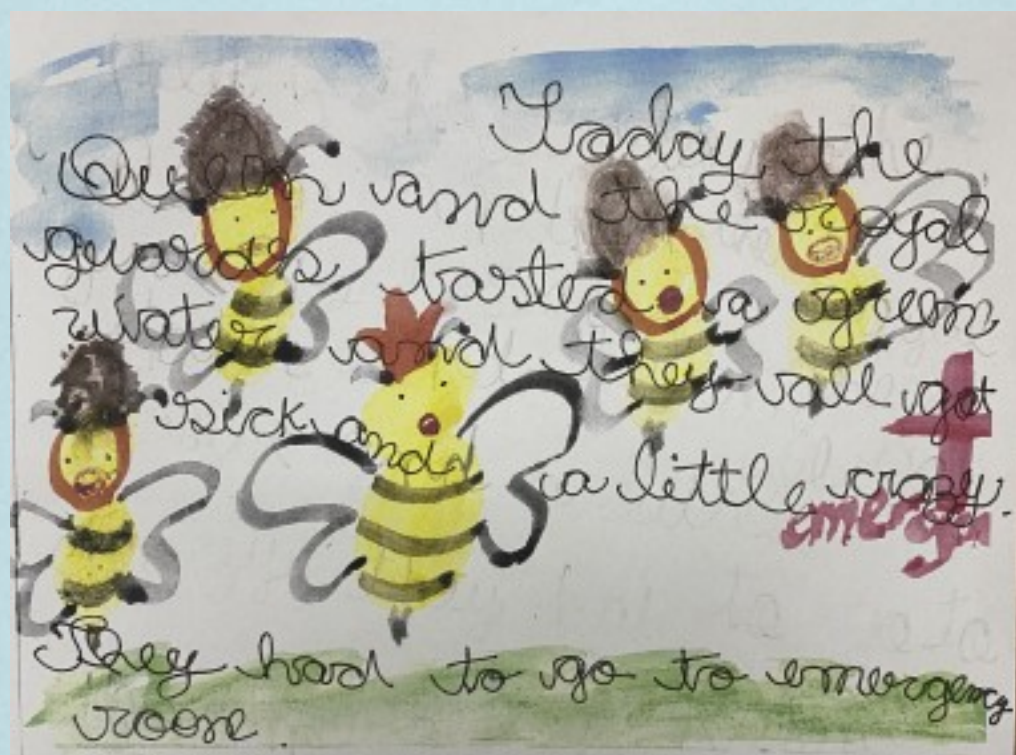 Today the
Queen and the royal
guards tasted a green
water and they all got
sick and a little crazy.
emergen
They had to go to emergency
room